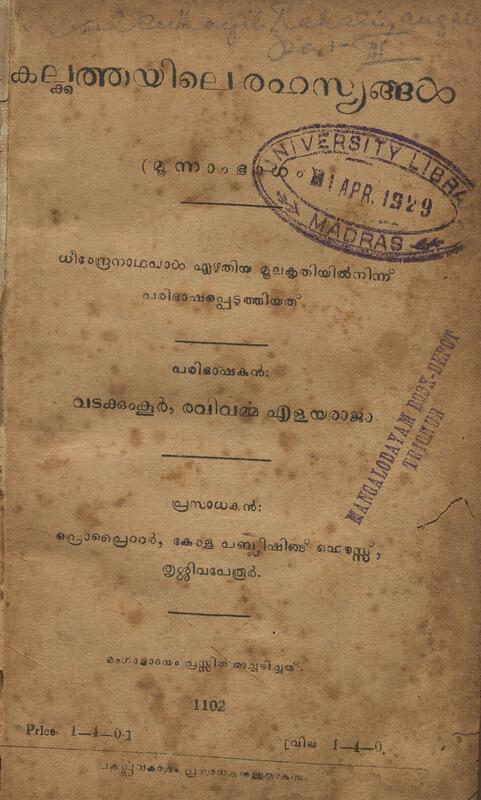 Part III
കല്ക്കത്തയിലെ രഹസ്യങ്ങൾ
UNIVERSITY LIBRA
(മൂന്നാംഭാഗം
1 APR. 1929
MADRAS
ധീരേന്ദ്രനാഥപാൽ എഴുതിയ മൂലകൃതിയിൽനിന്ന്
പരിഭാഷപ്പെടുത്തിയത്.
പരിഭാഷകൻ:
വടക്കുംകൂർ, രവിവൎമ്മ എളയരാജാ.
MANGALODAYAM BOOK-DEPOT
TRICHUR
പ്രസാധകൻ:
പ്രൊപ്രൈറ്റർ, കേരള പബ്ലിഷിങ്ങ് ഹൌസ്സ്,
തൃശ്ശിവപേരൂർ.
മംഗളോദയം പ്രസ്സിൽ അച്ചടിച്ചത്.
1102
Price 1—4—0.]
[വില 1—4—0.
പകൎപ്പവകാശം പ്രസാധകന്നുള്ളതാകുന്നു.